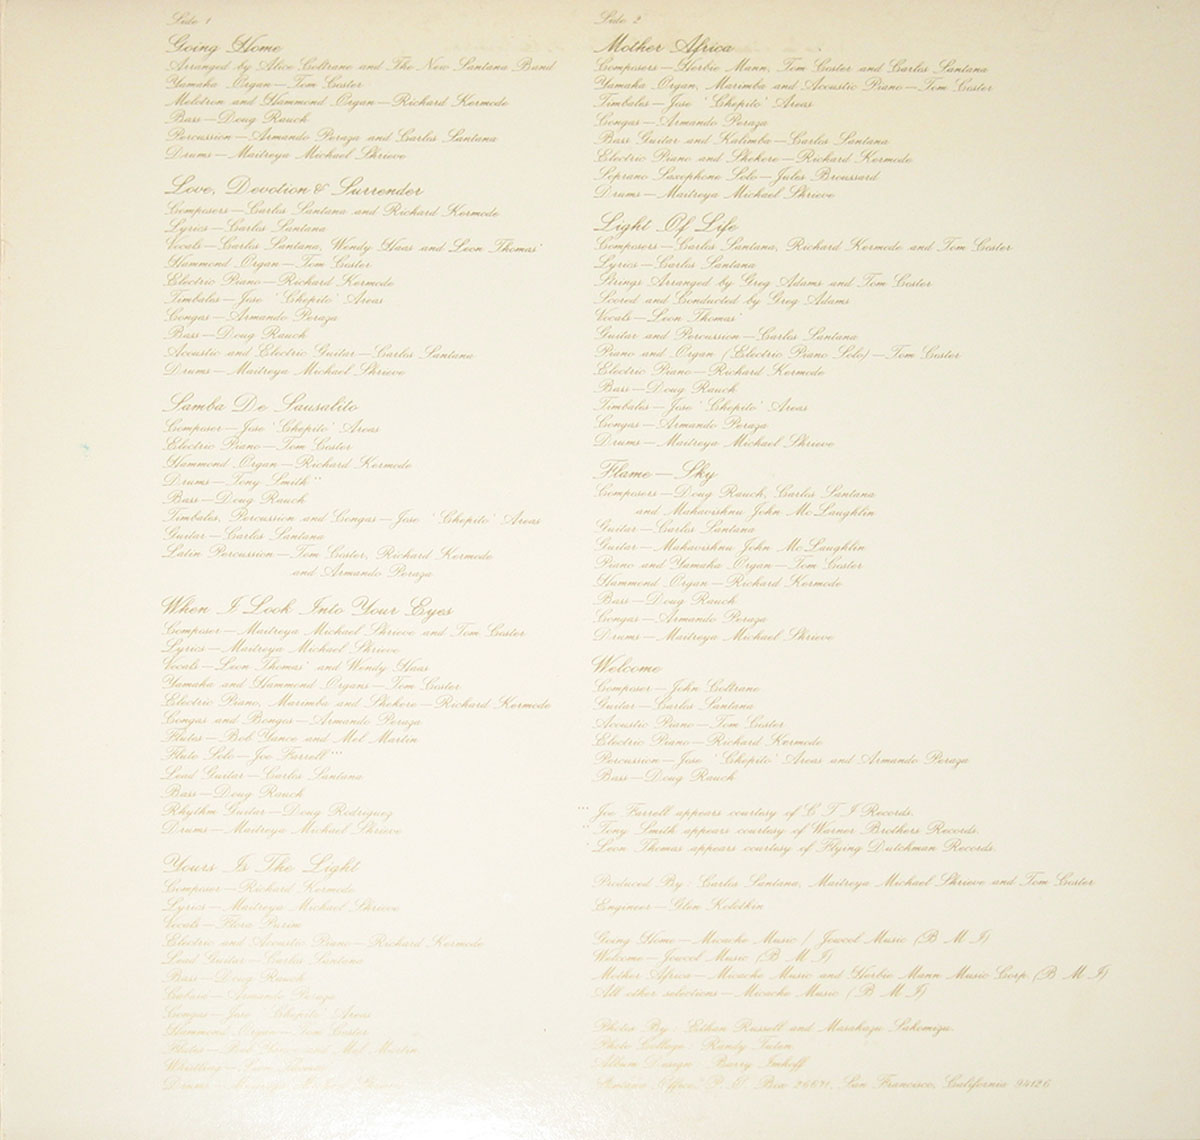 Side 1
Going Home
Arranged by Alice Coltrane and The New Santana Band
Yamaha Organ—Tom Coster
Melotron and Hammond Organ—Richard Kermode
Bass—Doug Rauch
Percussion—Armando Peraza and Carlos Santana
Drums—Maitreya Michael Shrieve
Love, Devotion & Surrender
Composers—Carlos Santana and Richard Kermode
Lyrics—Carlos Santana
Vocals—Carlos Santana, Wendy Haas and Leon Thomas*
Hammond Organ—Tom Coster
Electric Piano—Richard Kermode
Timbales—Jose 'Chepito' Areas
Congas—Armando Peraza
Bass—Doug Rauch
Acoustic and Electric Guitar—Carlos Santana
Drums—Maitreya Michael Shrieve
Samba De Sausalito
Composer—Jose 'Chepito' Areas
Electric Piano—Tom Coster
Hammond Organ—Richard Kermode
Drums—Tony Smith**
Bass—Doug Rauch
Timbales, Percussion and Congas—Jose 'Chepito' Areas
Guitar—Carlos Santana
Latin Percussion—Tom Coster, Richard Kermode
and Armando Peraza
When I Look Into Your Eyes
Composer—Maitreya Michael Shrieve and Tom Coster
Lyrics—Maitreya Michael Shrieve
Vocals—Leon Thomas* and Wendy Haas
Yamaha and Hammond Organs—Tom Coster
Electric Piano, Marimba and Shekere—Richard Kermode
Congas and Bongos—Armando Peraza
Flutes—Bob Yance and Mel Martin
Flute Solo—Joe Farrell***
Lead Guitar—Carlos Santana
Bass—Doug Rauch
Rhythm Guitar—Doug Rodriguez
Drums—Maitreya Michael Shrieve
Yours Is The Light
Composer—Richard Kermode
Lyrics—Maitreya Michael Shrieve
Vocals—Flora Purim
Electric and Acoustic Piano—Richard Kermode
Lead Guitar—Carlos Santana
Bass—Doug Rauch
Cabasa—Armando Peraza
Congas—Jose 'Chepito' Areas
Hammond Organ—Tom Coster
Flutes—Bob Yance and Mel Martin
Whistling—
Drums—Maitreya Michael Shrieve
Side 2
Mother Africa
Composers—Herbie Mann, Tom Coster and Carlos Santana
Yamaha Organ, Marimba and Acoustic Piano—Tom Coster
Timbales—Jose 'Chepito' Areas
Congas—Armando Peraza
Bass Guitar and Kalimba—Carlos Santana
Electric Piano and Shekere—Richard Kermode
Soprano Saxophone Solo—Jules Broussard
Drums—Maitreya Michael Shrieve
Light Of Life
Composers—Carlos Santana, Richard Kermode and Tom Coster
Lyrics—Carlos Santana
Strings Arranged by Greg Adams and Tom Coster
Scored and Conducted by Greg Adams
Vocals—Leon Thomas*
Guitar and Percussion—Carlos Santana
Piano and Organ (Electric Piano Solo)—Tom Coster
Electric Piano—Richard Kermode
Bass—Doug Rauch
Timbales—Jose 'Chepito' Areas
Congas—Armando Peraza
Drums—Maitreya Michael Shrieve
Flame—Sky
Composers—Doug Rauch, Carlos Santana
and Mahavishnu John McLaughlin
Guitar—Carlos Santana
Guitar—Mahavishnu John McLaughlin
Piano and Yamaha Organ—Tom Coster
Hammond Organ—Richard Kermode
Bass—Doug Rauch
Congas—Armando Peraza
Drums—Maitreya Michael Shrieve
Welcome
Composer—John Coltrane
Guitar—Carlos Santana
Acoustic Piano—Tom Coster
Electric Piano—Richard Kermode
Percussion—Jose 'Chepito' Areas and Armando Peraza
Bass—Doug Rauch
***Joe Farrell appears courtesy of C T I Records.
**Tony Smith appears courtesy of Warner Brothers Records.
*Leon Thomas appears courtesy of Flying Dutchman Records.
Produced By: Carlos Santana, Maitreya Michael Shrieve and Tom Coster
Engineer—Glen Kolotkin
Going Home—Micache Music / Jowcol Music (B M I)
Welcome—Jowcol Music (B M I)
Mother Africa—Micache Music and Herbie Mann Music Corp. (B M I)
All other selections—Micache Music (B M I)
Photos By: Ethan Russell and Masakazu Sakomizu.
Photo Collage: Randy Tuten.
Album Design: Barry Imhoff
Santana Office: P. O. Box 26671, San Francisco, California 94126